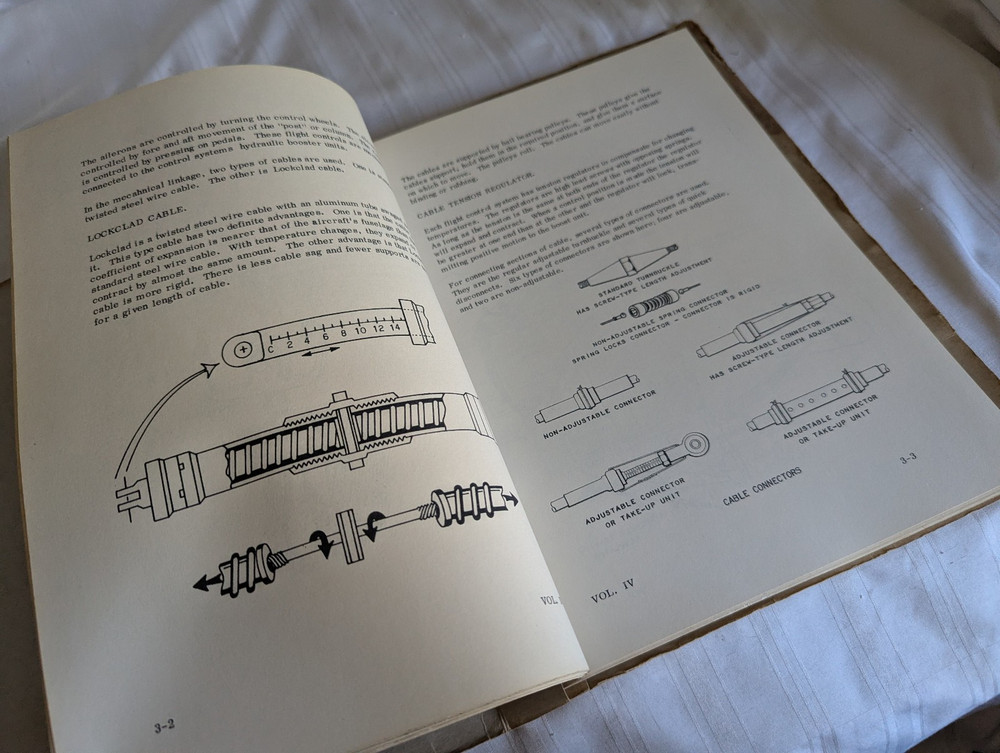 The ailerons are controlled by turning the control wheels. The
controlled by fore and aft movement of the "post" or column.
is controlled by pressing on pedals. These flight controls are
connected to the control systems hydraulic booster units.
In the mecahnical linkage, two types of cables are used. One is
twisted steel wire cable. The other is Lockclad cable.
LOCKCLAD CABLE.
Lockclad is a twisted steel wire cable with an aluminum tube swaged
it. This type cable has two definite advantages. One is that the
coefficient of expansion is nearer that of the aircraft's fuselage than
standard steel wire cable. With temperature changes, they expand
contract by almost the same amount. The other advantage is that
cable is more rigid. There is less cable sag and fewer supports are
for a given length of cable.
C 2 4 6 8 10 12 14
VOL.
3-2
The cables are supported by ball bearing pulleys. These pulleys give the
cables support, hold them in the required position, and give them a surface
on which to move. The pulleys roll. The cables can move easily without
binding or rubbing.
CABLE TENSION REGULATOR.
Each flight control system has tension regulators to compensate for changing
temperatures. The regulators are high load arrows with opposing springs.
As long as the tension is the same at both ends of the regulator the regulator
will expand and contract. When a control position is made the tension will
be greater at one end than at the other and the regulator will lock, trans-
mitting positive motion to the boost unit.
For connecting sections of cable, several types of connectors are used.
They are the regular adjustable turnbuckle and several types of quick
disconnects. Six types of connectors are shown here; four are adjustable,
and two are non-adjustable.
STANDARD TURNBUCKLE
HAS SCREW-TYPE LENGTH ADJUSTMENT
NON-ADJUSTABLE SPRING CONNECTOR
SPRING LOCKS CONNECTOR - CONNECTOR IS RIGID
ADJUSTABLE CONNECTOR
HAS SCREW-TYPE LENGTH ADJUSTMENT
NON-ADJUSTABLE CONNECTOR
ADJUSTABLE CONNECTOR
OR TAKE-UP UNIT
ADJUSTABLE CONNECTOR
OR TAKE-UP UNIT
CABLE CONNECTORS
3-3
VOL. IV